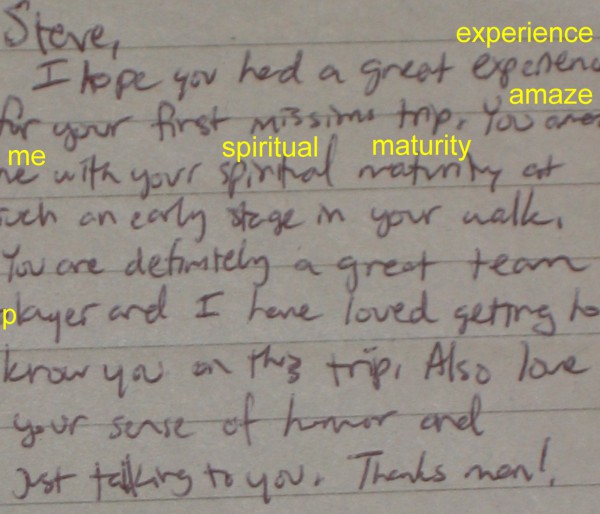 Steve,
experience
I hope you had a great experience
amaze
for your first missions trip. You amaze
me spiritual maturity
me with your spiritual maturity at
such an early stage in your walk.
You are definitely a great team
player and I have loved getting to
know you on this trip. Also love
your sense of humor and
just talking to you. Thanks man!